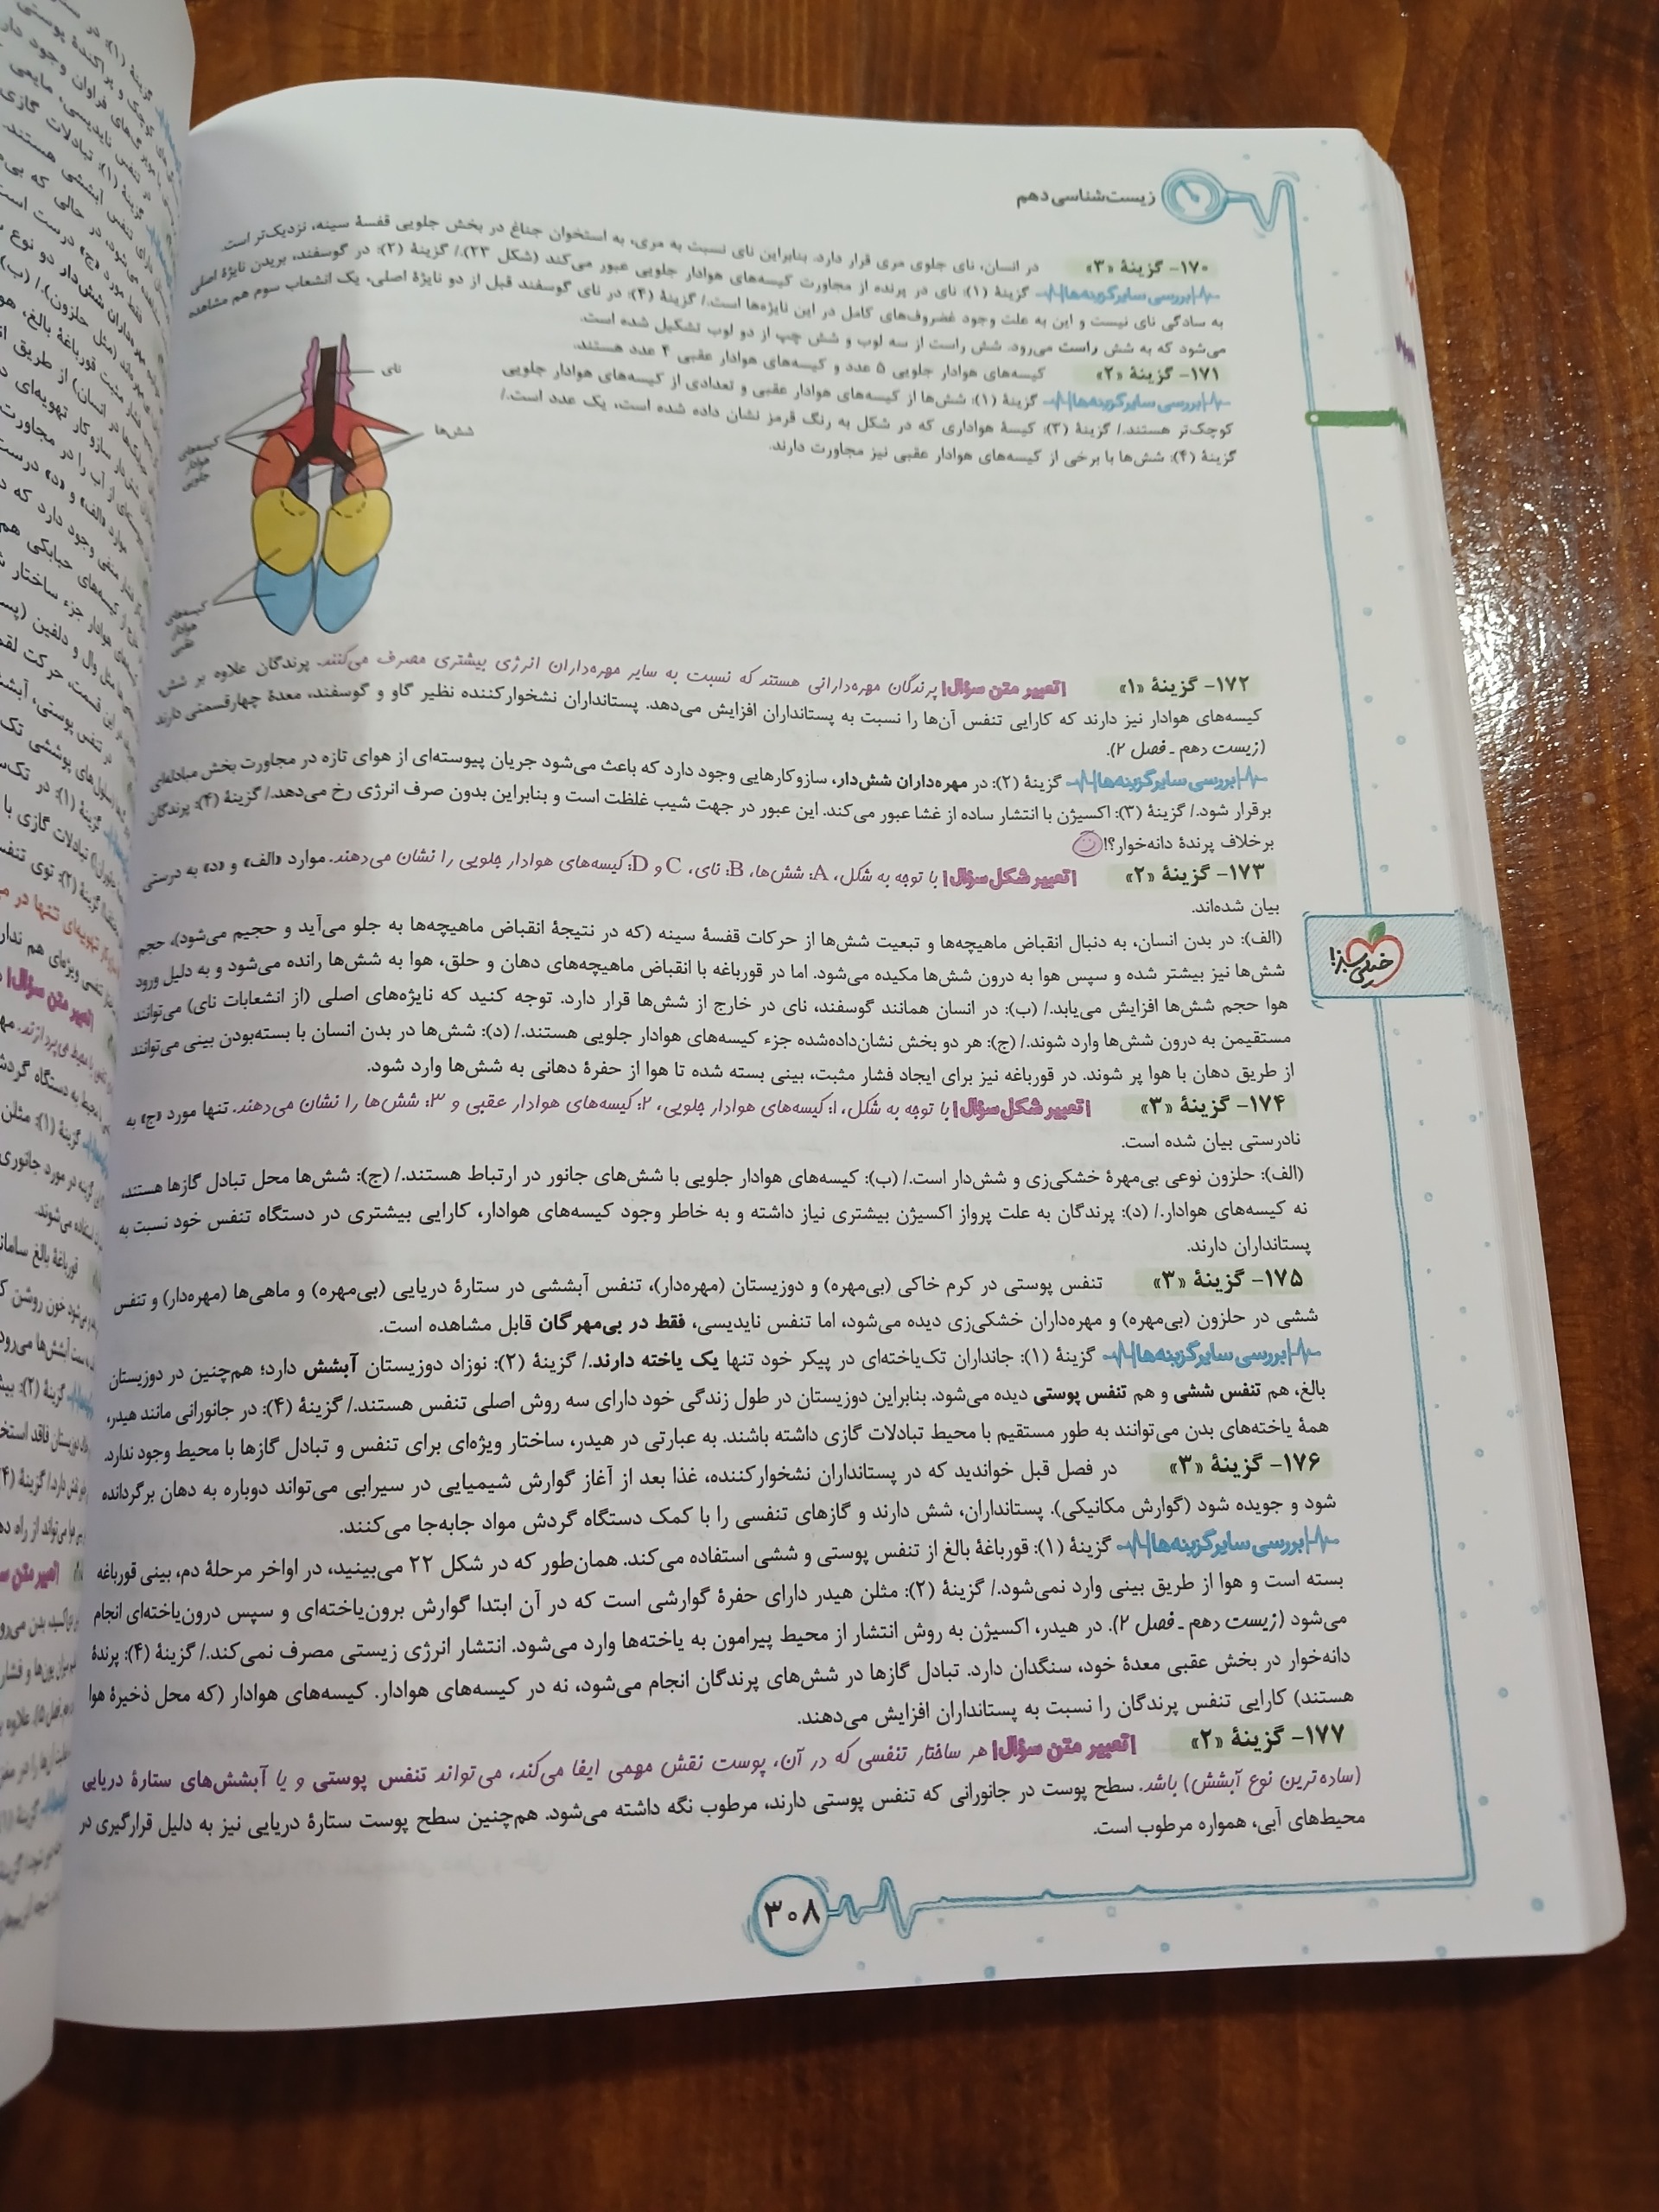 زیست‌شناسی دهم
۱۷۰- گزینهٔ «۳» در انسان، نای جلوی مری قرار دارد. بنابراین نای نسبت به مری، به استخوان جناغ در بخش جلویی قفسهٔ سینه، نزدیک‌تر است.
بررسی سایر گزینه‌ها گزینهٔ (۱): نای در پرنده از مجاورت کیسه‌های هوادار جلویی عبور می‌کند (شکل ۲۳)./ گزینهٔ (۲): در گوسفند، بریدن نایژهٔ اصلی
به سادگی نای نیست و این به علت وجود غضروف‌های کامل در این نایژه‌ها است./ گزینهٔ (۴): در نای گوسفند قبل از دو نایژهٔ اصلی، یک انشعاب سوم هم مشاهده
می‌شود که به شش راست می‌رود. شش راست از سه لوب و شش چپ از دو لوب تشکیل شده است.
۱۷۱- گزینهٔ «۲» کیسه‌های هوادار جلویی ۵ عدد و کیسه‌های هوادار عقبی ۴ عدد هستند.
بررسی سایر گزینه‌ها گزینهٔ (۱): شش‌ها از کیسه‌های هوادار عقبی و تعدادی از کیسه‌های هوادار جلویی
کوچک‌تر هستند./ گزینهٔ (۳): کیسهٔ هواداری که در شکل به رنگ قرمز نشان داده شده است، یک عدد است./
گزینهٔ (۴): شش‌ها با برخی از کیسه‌های هوادار عقبی نیز مجاورت دارند.
نای
شش‌ها
کیسه‌های
هوادار
جلویی
کیسه‌های
هوادار
عقبی
۱۷۲- گزینهٔ «۱» |تعبیر متن سؤال| پرندگان مهره‌دارانی هستند که نسبت به سایر مهره‌داران انرژی بیشتری مصرف می‌کنند. پرندگان علاوه بر شش
کیسه‌های هوادار نیز دارند که کارایی تنفس آن‌ها را نسبت به پستانداران افزایش می‌دهد. پستانداران نشخوارکننده نظیر گاو و گوسفند، معدهٔ چهارقسمتی دارند
(زیست دهم ـ فصل ۲).
بررسی سایر گزینه‌ها گزینهٔ (۲): در مهره‌داران شش‌دار، سازوکارهایی وجود دارد که باعث می‌شود جریان پیوسته‌ای از هوای تازه در مجاورت بخش مبادله‌ای
برقرار شود./ گزینهٔ (۳): اکسیژن با انتشار ساده از غشا عبور می‌کند. این عبور در جهت شیب غلظت است و بنابراین بدون صرف انرژی رخ می‌دهد./ گزینهٔ (۴): پرندگان
برخلاف پرندهٔ دانه‌خوار؟!
۱۷۳- گزینهٔ «۲» |تعبیر شکل سؤال| با توجه به شکل، A: شش‌ها، B: نای، C و D: کیسه‌های هوادار جلویی را نشان می‌دهند. موارد «الف» و «د» به درستی
بیان شده‌اند.
(الف): در بدن انسان، به دنبال انقباض ماهیچه‌ها و تبعیت شش‌ها از حرکات قفسهٔ سینه (که در نتیجهٔ انقباض ماهیچه‌ها به جلو می‌آید و حجیم می‌شود)، حجم
شش‌ها نیز بیشتر شده و سپس هوا به درون شش‌ها مکیده می‌شود. اما در قورباغه با انقباض ماهیچه‌های دهان و حلق، هوا به شش‌ها رانده می‌شود و به دلیل ورود
هوا حجم شش‌ها افزایش می‌یابد./ (ب): در انسان همانند گوسفند، نای در خارج از شش‌ها قرار دارد. توجه کنید که نایژه‌های اصلی (از انشعابات نای) می‌توانند
مستقیمن به درون شش‌ها وارد شوند./ (ج): هر دو بخش نشان‌داده‌شده جزء کیسه‌های هوادار جلویی هستند./ (د): شش‌ها در بدن انسان با بسته‌بودن بینی می‌توانند
از طریق دهان با هوا پر شوند. در قورباغه نیز برای ایجاد فشار مثبت، بینی بسته شده تا هوا از حفرهٔ دهانی به شش‌ها وارد شود.
۱۷۴- گزینهٔ «۳» |تعبیر شکل سؤال| با توجه به شکل، ۱: کیسه‌های هوادار جلویی، ۲: کیسه‌های هوادار عقبی و ۳: شش‌ها را نشان می‌دهند. تنها مورد «ج» به
نادرستی بیان شده است.
(الف): حلزون نوعی بی‌مهرهٔ خشکی‌زی و شش‌دار است./ (ب): کیسه‌های هوادار جلویی با شش‌های جانور در ارتباط هستند./ (ج): شش‌ها محل تبادل گازها هستند،
نه کیسه‌های هوادار./ (د): پرندگان به علت پرواز اکسیژن بیشتری نیاز داشته و به خاطر وجود کیسه‌های هوادار، کارایی بیشتری در دستگاه تنفس خود نسبت به
پستانداران دارند.
۱۷۵- گزینهٔ «۳» تنفس پوستی در کرم خاکی (بی‌مهره) و دوزیستان (مهره‌دار)، تنفس آبششی در ستارهٔ دریایی (بی‌مهره) و ماهی‌ها (مهره‌دار) و تنفس
ششی در حلزون (بی‌مهره) و مهره‌داران خشکی‌زی دیده می‌شود، اما تنفس نایدیسی، فقط در بی‌مهرگان قابل مشاهده است.
بررسی سایر گزینه‌ها گزینهٔ (۱): جانداران تک‌یاخته‌ای در پیکر خود تنها یک یاخته دارند./ گزینهٔ (۲): نوزاد دوزیستان آبشش دارد؛ هم‌چنین در دوزیستان
بالغ، هم تنفس ششی و هم تنفس پوستی دیده می‌شود. بنابراین دوزیستان در طول زندگی خود دارای سه روش اصلی تنفس هستند./ گزینهٔ (۴): در جانورانی مانند هیدر،
همهٔ یاخته‌های بدن می‌توانند به طور مستقیم با محیط تبادلات گازی داشته باشند. به عبارتی در هیدر، ساختار ویژه‌ای برای تنفس و تبادل گازها با محیط وجود ندارد.
۱۷۶- گزینهٔ «۳» در فصل قبل خواندید که در پستانداران نشخوارکننده، غذا بعد از آغاز گوارش شیمیایی در سیرابی می‌تواند دوباره به دهان برگردانده
شود و جویده شود (گوارش مکانیکی). پستانداران، شش دارند و گازهای تنفسی را با کمک دستگاه گردش مواد جابه‌جا می‌کنند.
بررسی سایر گزینه‌ها گزینهٔ (۱): قورباغهٔ بالغ از تنفس پوستی و ششی استفاده می‌کند. همان‌طور که در شکل ۲۲ می‌بینید، در اواخر مرحلهٔ دم، بینی قورباغه
بسته است و هوا از طریق بینی وارد نمی‌شود./ گزینهٔ (۲): مثلن هیدر دارای حفرهٔ گوارشی است که در آن ابتدا گوارش برون‌یاخته‌ای و سپس درون‌یاخته‌ای انجام
می‌شود (زیست دهم ـ فصل ۲). در هیدر، اکسیژن به روش انتشار از محیط پیرامون به یاخته‌ها وارد می‌شود. انتشار انرژی زیستی مصرف نمی‌کند./ گزینهٔ (۴): پرندهٔ
دانه‌خوار در بخش عقبی معدهٔ خود، سنگدان دارد. تبادل گازها در شش‌های پرندگان انجام می‌شود، نه در کیسه‌های هوادار. کیسه‌های هوادار (که محل ذخیرهٔ هوا
هستند) کارایی تنفس پرندگان را نسبت به پستانداران افزایش می‌دهند.
۱۷۷- گزینهٔ «۲» |تعبیر متن سؤال| هر ساختار تنفسی که در آن، پوست نقش مهمی ایفا می‌کند، می‌تواند تنفس پوستی و یا آبشش‌های ستارهٔ دریایی
(ساده‌ترین نوع آبشش) باشد. سطح پوست در جانورانی که تنفس پوستی دارند، مرطوب نگه داشته می‌شود. هم‌چنین سطح پوست ستارهٔ دریایی نیز به دلیل قرارگیری در
محیط‌های آبی، همواره مرطوب است.
خیلی سبز!
۳۰۸